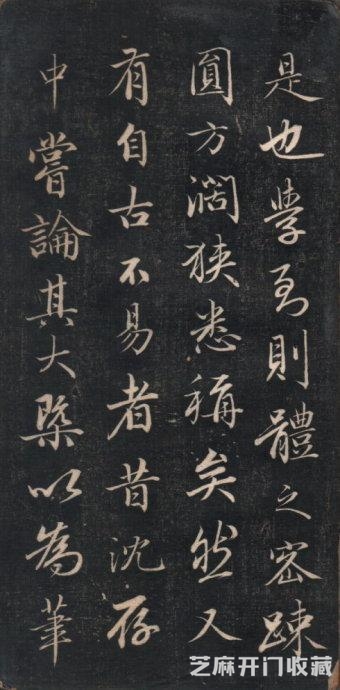 是也學至則體之密踈
圓方濶狹悉稱矣然又
有自古不易者昔沈存
中嘗論其大槩以為筆
芝麻开门收藏